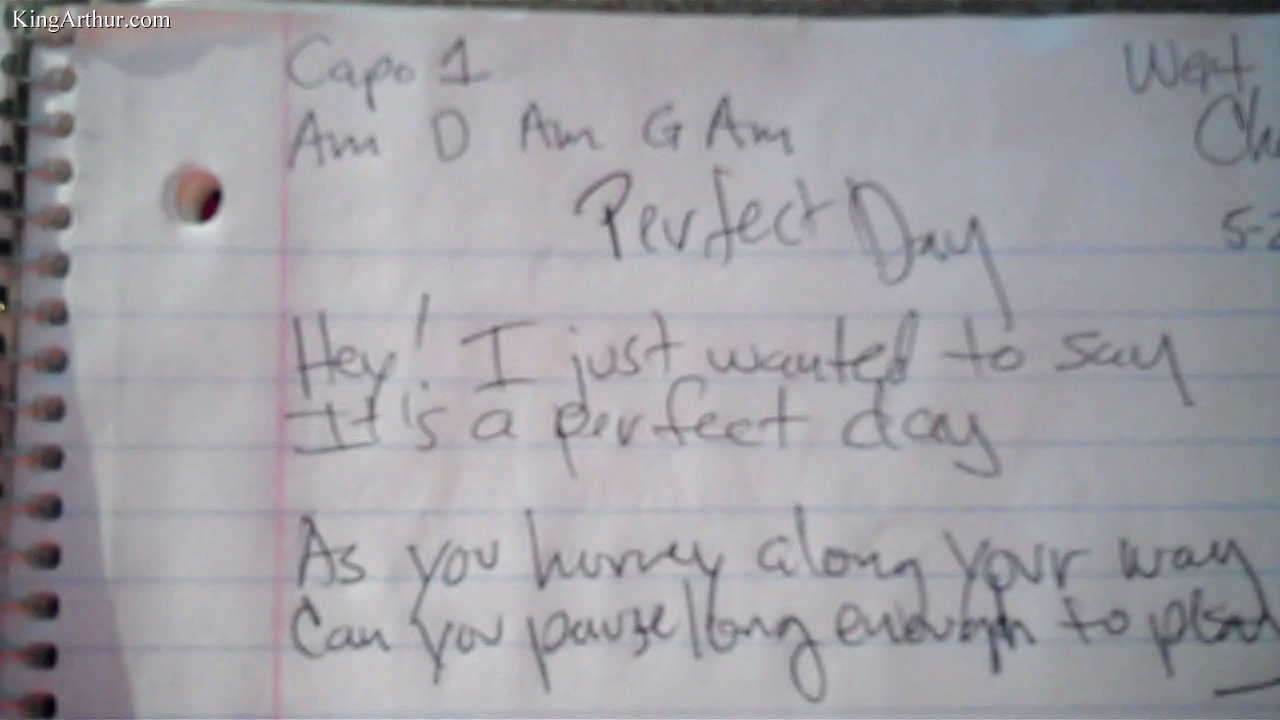 KingArthur.com
Capo 1
Am D Am G Am
Went
5-2
Perfect Day
Hey! I just wanted to say
It's a perfect day
As you hurry along your way
Can you pause long enough to